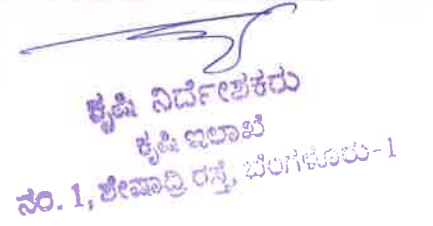 ಕೃಷಿ ನಿರ್ದೇಶಕರು
ಕೃಷಿ ಇಲಾಖೆ
ನಂ. 1, ಶೇಷಾದ್ರಿ ರಸ್ತೆ, ಬೆಂಗಳೂರು-1